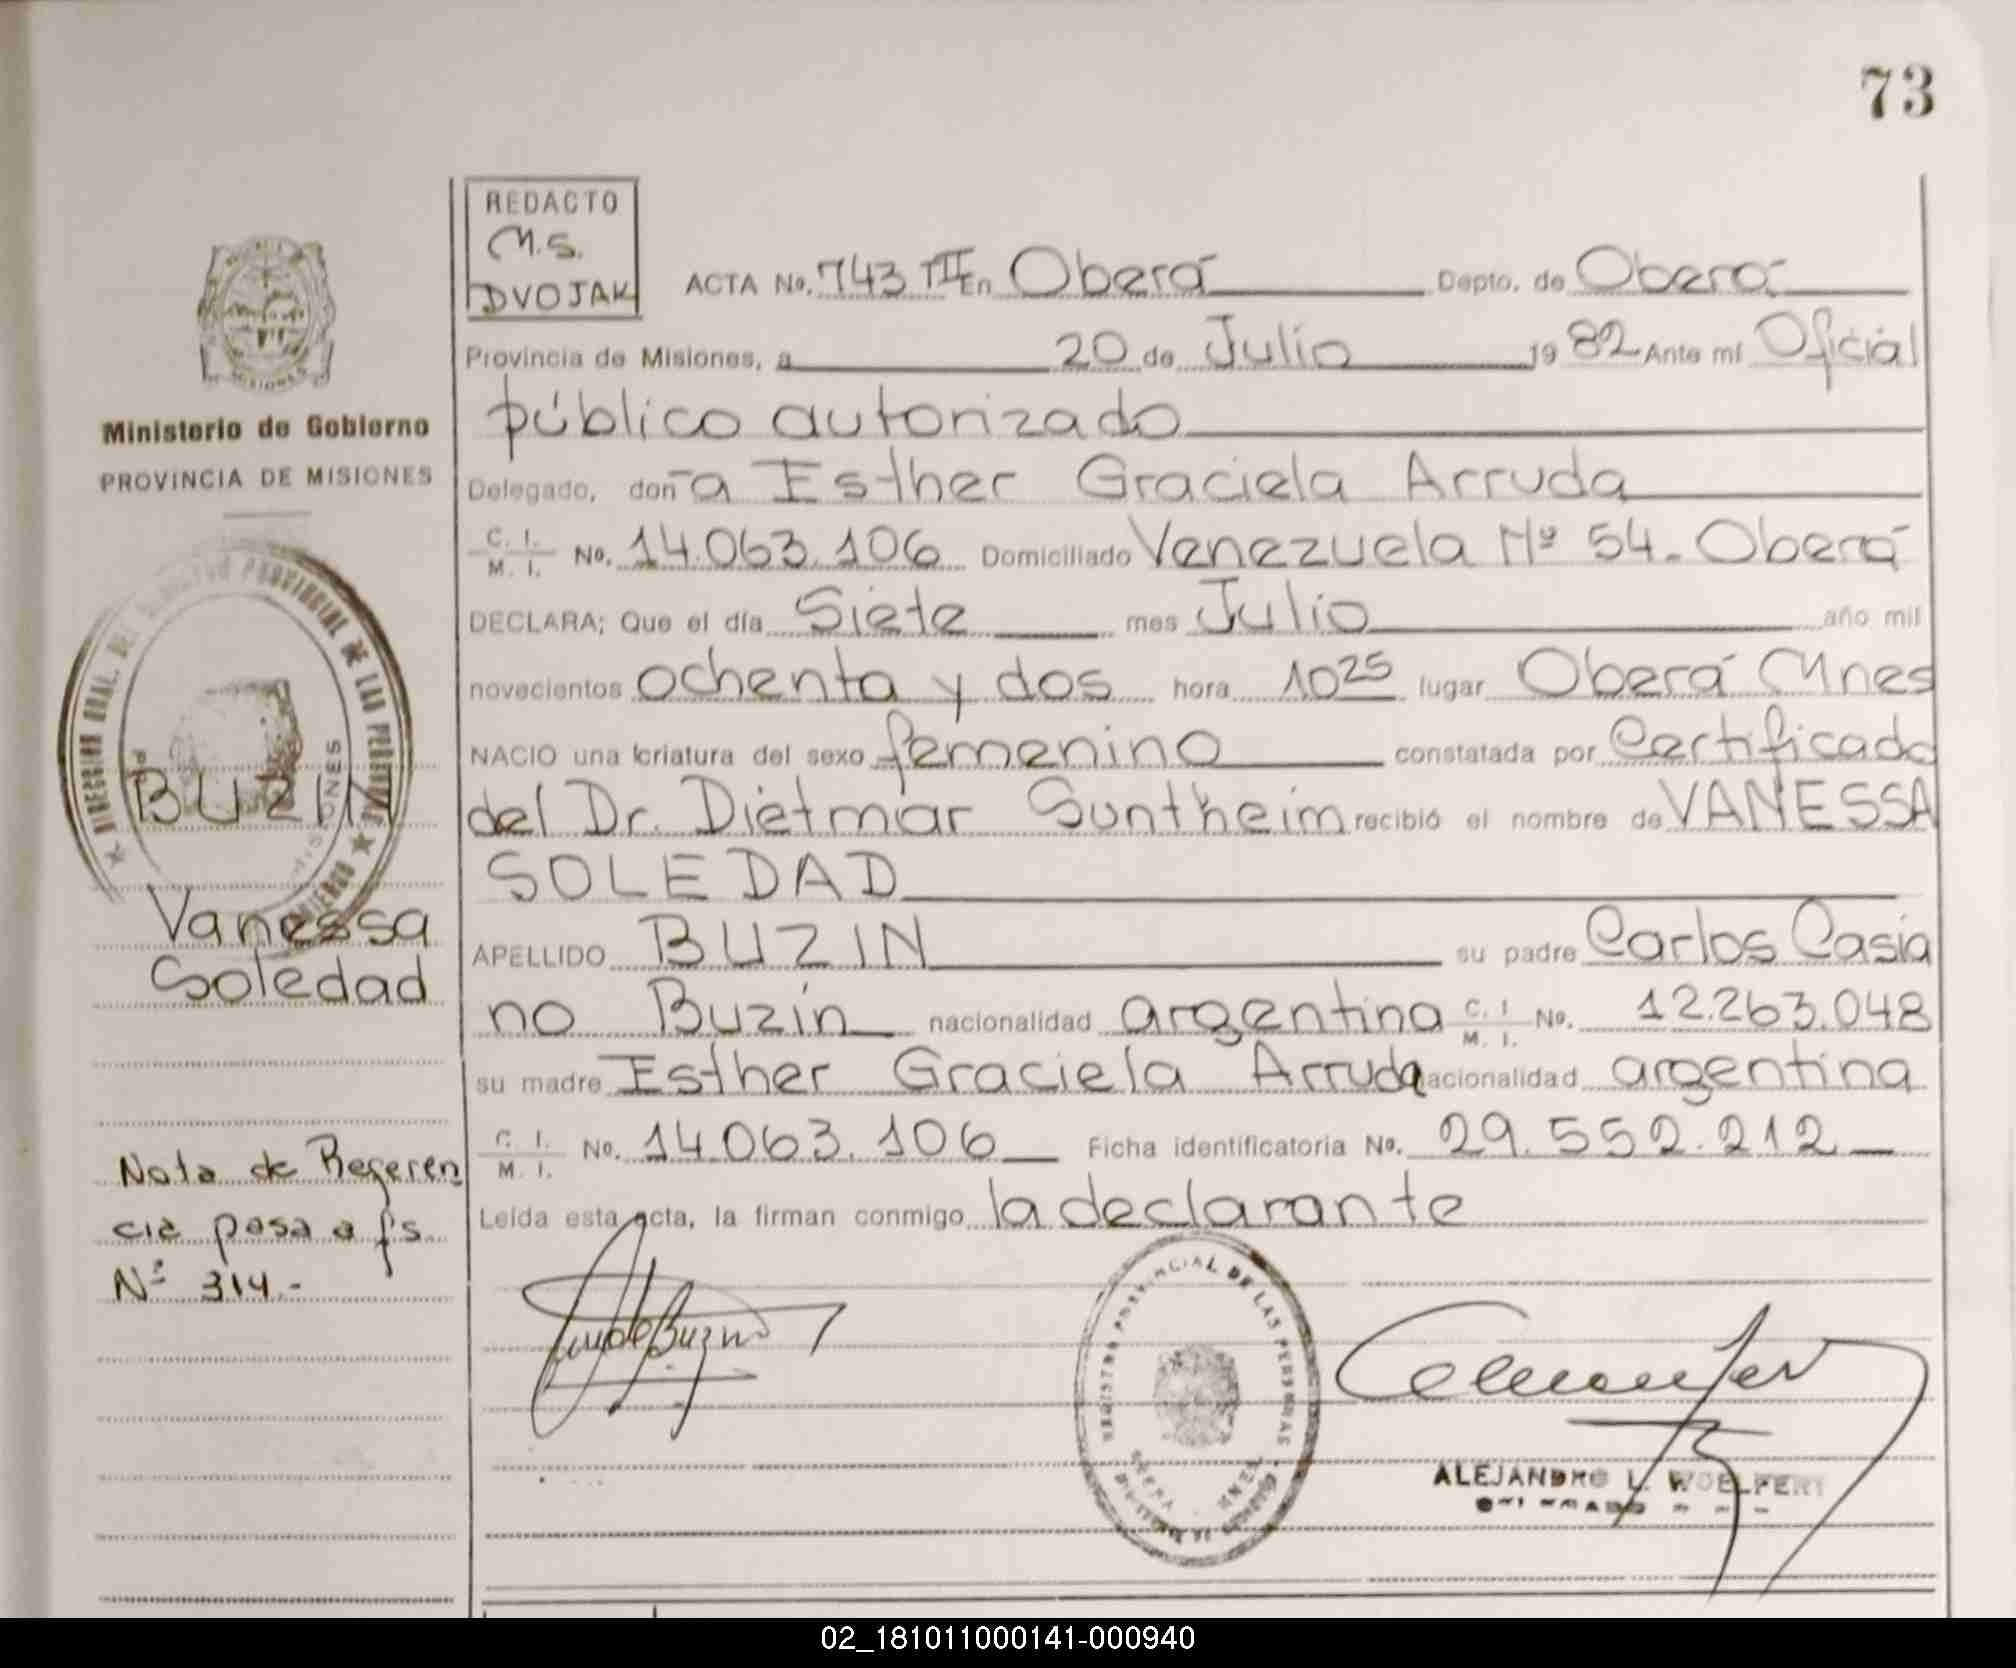 73
REDACTO
M.S.
DVOJAK
ACTA No. 743 TII En Oberá Depto. de Oberá
Provincia de Misiones, a 20 de Julio 19 82 Ante mí Oficial
público autorizado
Delegado, doña Esther Graciela Arruda
C. I. M. I. No. 14.063.106 Domiciliado Venezuela Nº 54. Oberá
DECLARA; Que el día Siete mes Julio año mil
novecientos ochenta y dos hora 10 25 lugar Oberá Mnes
NACIO una criatura del sexo femenino constatada por Certificado
del Dr. Dietmar Suntheim recibió el nombre de VANESSA
SOLEDAD
APELLIDO BUZIN su padre Carlos Casia
no Buzin nacionalidad argentina C. I. M. I. No. 12.263.048
su madre Esther Graciela Arruda nacionalidad argentina
C. I. M. I. No. 14.063.106 Ficha identificatoria No. 29.552.212
Leída esta acta, la firman conmigo la declarante
REGISTRO PROVINCIAL DE LAS PERSONAS
ALEJANDRO L. WOELFERT
MISIONES
Ministerio de Gobierno
PROVINCIA DE MISIONES
DIRECCION GRAL. DEL REGISTRO PROVINCIAL DE LAS PERSONAS
MISIONES
BUZIN
Vanessa
Soledad
Nota de Referen
cia pasa a fs
Nº 314.-
02_181011000141-000940